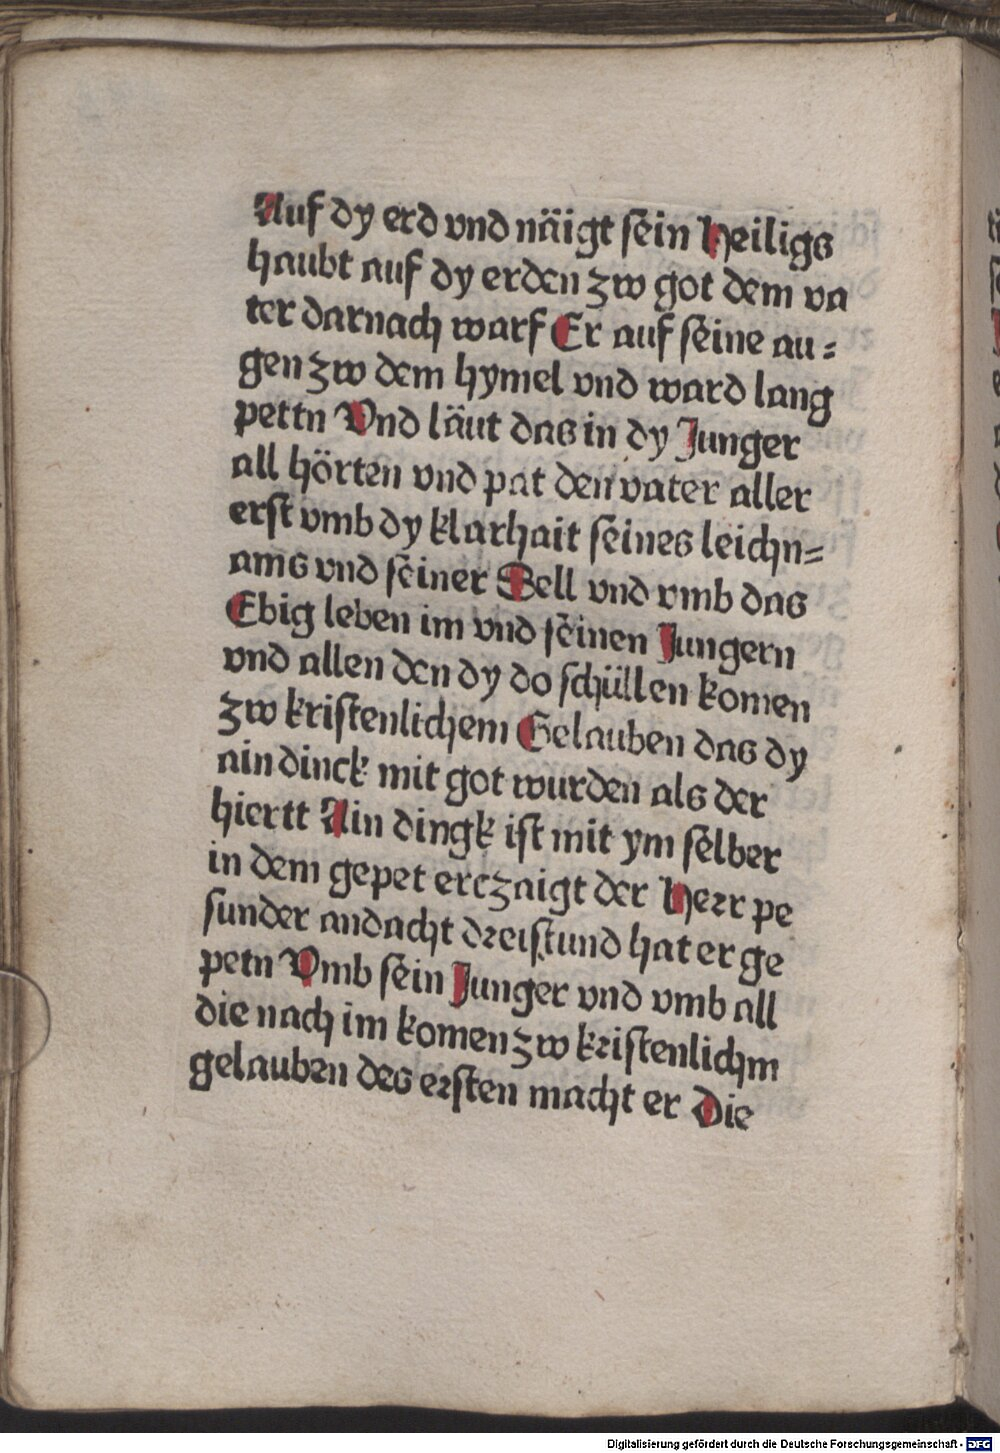 Auf dy erd vnd näigt sein Heiligs
haubt auf dy erden zw got dem va
ter darnach warf Er auf seine au=
gen zw dem hymel vnd ward lang
pettn Vnd läut das in dy Junger
all hörten vnd pat den vater aller
erst vmb dy klarhait seines leichn=
ams vnd seiner Sell vnd vmb das
Ebig leben im vnd seinen Jungern
vnd allen den dy do schüllen komen
zw kristenlichem Gelauben das dy
ain dinck mit got wurden als der
hiertt Ain dingk ist mit ym selber
in dem gepet erczaigt der Herr pe
sunder andacht dreistund hat er ge
petn Vmb sein Junger vnd vmb all
die nach im komen zw kristenlichm
gelauben des ersten macht er Die
Digitalisierung gefördert durch die Deutsche Forschungsgemeinschaft - DFG